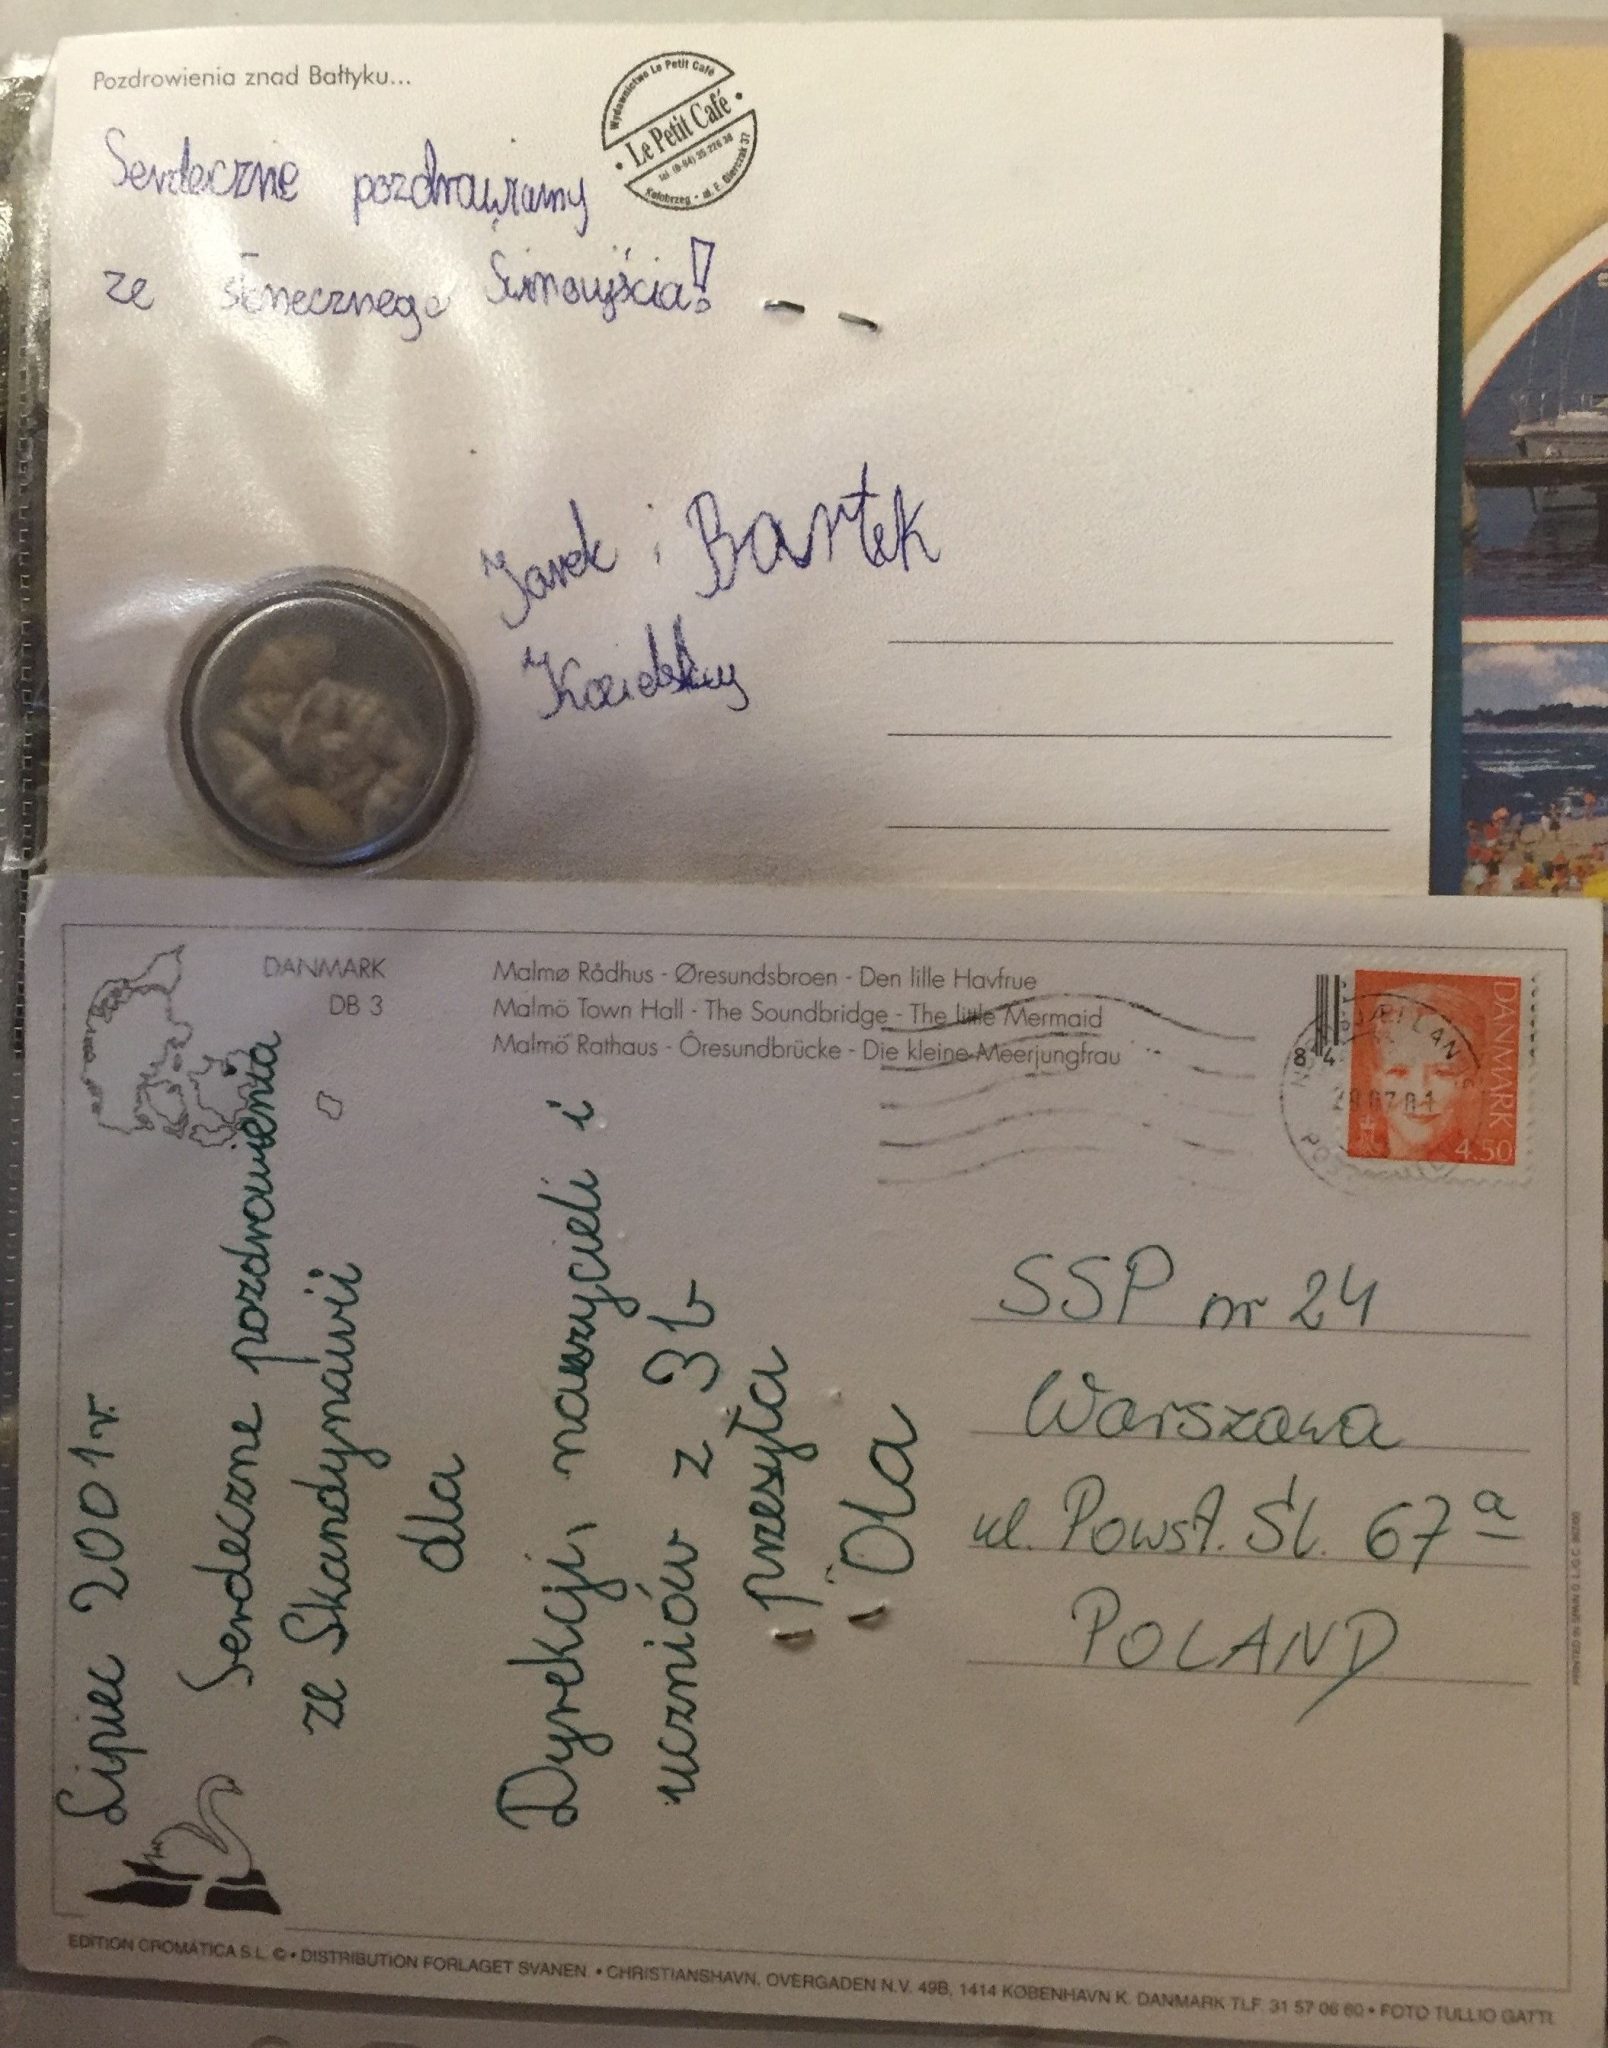 Pozdrowienia znad Bałtyku...
Wydawnictwo Le Petit Café
Le Petit Café
tel. (0-94) 35 226 38
Kołobrzeg • ul. E. Gierczak 37
Serdecznie pozdrawiamy
ze słonecznego Świnoujścia!
Jarek i Bartek
DANMARK
DB 3
Malmø Rådhus - Øresundsbroen - Den lille Havfrue
Malmö Town Hall - The Soundbridge - The little Mermaid
Malmö Rathaus - Ôresundbrücke - Die kleine Meerjungfrau
DANMARK
4.50
84
Lipiec 2001 r.
Serdeczne pozdrowienia
ze Skandynawii
dla
Dyrekcji, nauczycieli i
uczniów z 3b
przesyła
Ola
SSP nr 24
Warszawa
ul. Powst. Śl. 67 a
POLAND
EDITION CROMATICA S.L. © • DISTRIBUTION FORLAGET SVANEN • CHRISTIANSHAVN, OVERGADEN N.V. 49B, 1414 KØBENHAVN K. DANMARK TLF. 31 57 06 60 • FOTO TULLIO GATTI